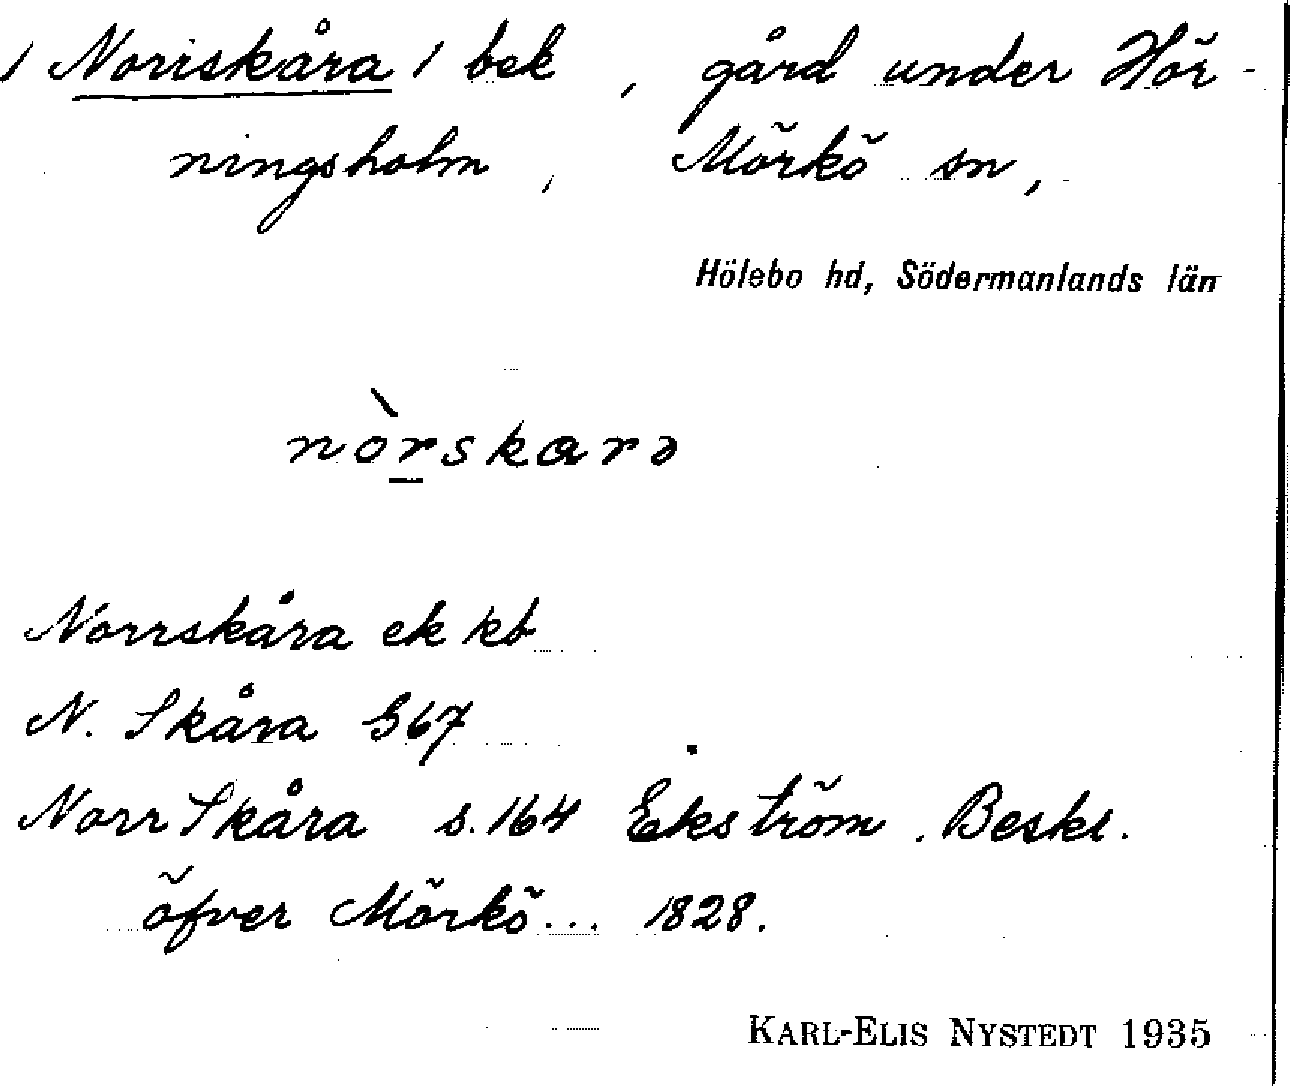 / Noriskåra / bek, gård under Hör-
ningsholm, Mörkö sn,
Hölebo hd, Södermanlands län
nòrskarə
Norrskåra ek kb
N. Skåra G67
Norr Skåra s. 164 Ekström. Beskr.
öfver Mörkö... 1828.
KARL-ELIS NYSTEDT 1935